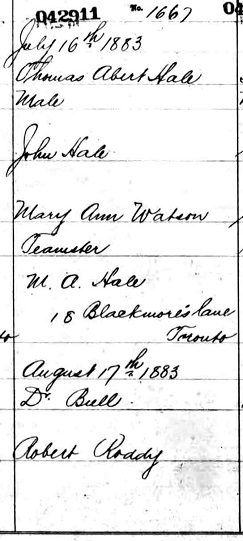 042911 No. 1667 04
July 16th 1883
Thomas Abert Hale
Male
John Hale
Mary Ann Watson
Teamster
M. A. Hale
18 Blackmore's lane
Toronto
August 17th 1883
Dr. Bull.
Robert Roddy